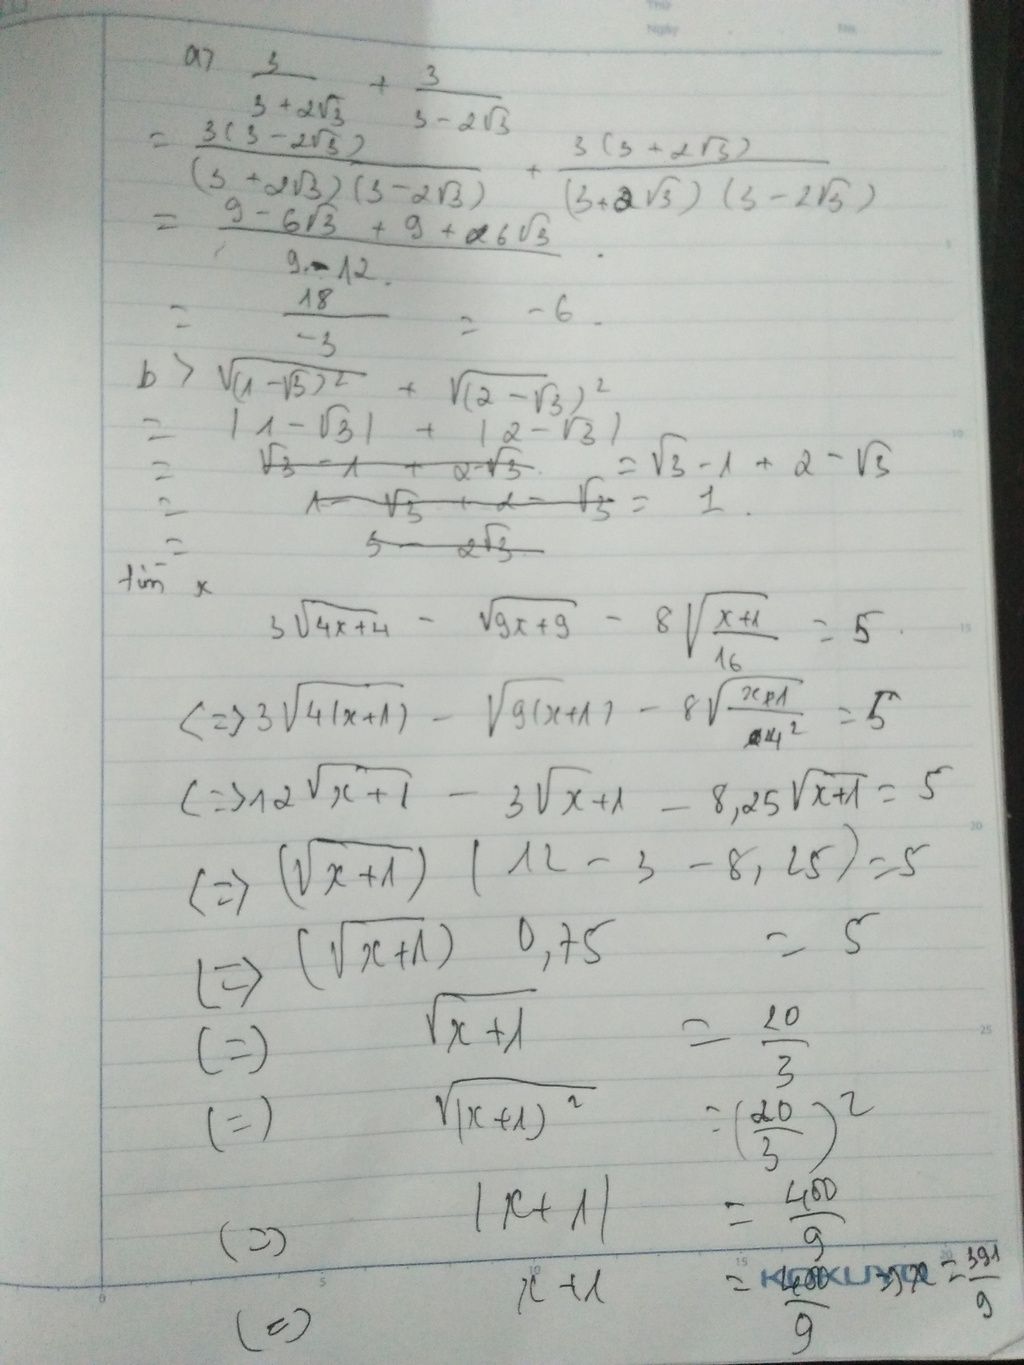 Thứ
Ngày
No.
a) 3/(3+2√3) + 3/(3-2√3)
= 3(3-2√3)/((3+2√3)(3-2√3)) + 3(3+2√3)/((3+2√3)(3-2√3))
= (9-6√3+9+6√3)/(9-12).
= 18/-3 = -6.
b> √(1-√3)² + √(2-√3)²
= |1-√3| + |2-√3|
= √3 - 1 + 2-√3 = √3-1 + 2-√3
= 1 - √3 + 2 - √3 = 1.
= 3 - 2√3
tìm x
3√(4x+4) - √(9x+9) - 8√((x+1)/16) = 5.
(=> 3√(4(x+1)) - √(9(x+1)) - 8√((x+1)/4²) = 5
(=> 12√(x+1) - 3√(x+1) - 8,25√(x+1) = 5
(=> (√(x+1)) (12-3-8,25) = 5
(=> (√(x+1)) 0,75 = 5
(=) √(x+1) = 20/3
(=) √(x+1)² = (20/3)²
(=) |x+1| = 400/9
(=) x+1 = 400/9 => x = 391/9
5
10
15
20
25
0
5
10
15
20
KOKUYO